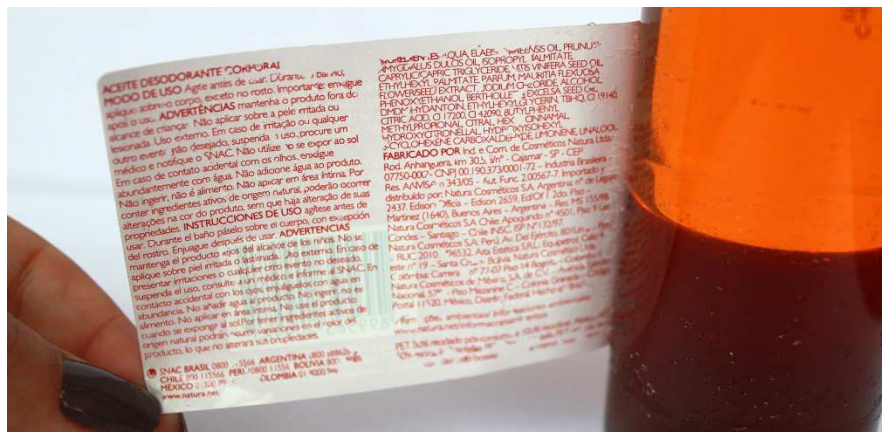 ACEITE DESODORANTE CORPORAL
MODO DE USO Agite antes de usar. Durante o banho,
aplique sobre o corpo, exceto no rosto. Importante: enxágue
após o uso. ADVERTÊNCIAS mantenha o produto fora do
alcance de crianças. Não aplicar sobre a pele irritada ou
lesionada. Uso externo. Em caso de irritação ou qualquer
outro evento não desejado, suspenda o uso, procure um
médico e notifique o SNAC. Não utilize ao se expor ao sol
Em caso de contato acidental com os olhos, enxágue
abundantemente com água. Não adicione água ao produto.
Não ingerir, não é alimento. Não aplicar em área íntima. Por
conter ingredientes ativos de origem natural, poderão ocorrer
alterações na cor do produto, sem que haja alteração de suas
propriedades. INSTRUCCIONES DE USO agítese antes de
usar. Durante el baño páselo sobre el cuerpo, con excepción
del rostro. Enjuague después de usar. ADVERTENCIAS
mantenga el producto lejos del alcance de los niños. No se
aplique sobre piel irritada o lastimada. Uso externo. En caso de
presentar irritaciones o cualquier otro evento no deseado,
suspenda el uso, consulte a un médico e informe al SNAC. En
contacto accidental con los ojos, enjuáguelos con agua en
abundancia. No añadir agua al producto. No ingerir, no es
alimento. No aplicar en área íntima. No use el producto
cuando se exponga al sol. Por tener ingredientes activos de
origen natural podrán ocurrir variaciones en el color del
producto, lo que no alterará sus propiedades.
SNAC BRASIL 0800 5566 ARGENTINA
CHILE 800 115566 PERU 0800 11556 BOLIVIA 800
MÉXICO COLOMBIA
www.natura.net
INGREDIENTES AQUA, ELAEIS GUINEENSIS OIL, PRUNUS
AMYGDALUS DULCIS OIL, ISOPROPYL PALMITATE,
CAPRYLIC/CAPRIC TRIGLYCERIDE, VITIS VINIFERA SEED OIL
ETHYLHEXYL PALMITATE, PARFUM, MAURITIA FLEXUOSA
FLOWER/SEED EXTRACT, SODIUM CHLORIDE, ALCOHOL
PHENOXYETHANOL, BERTHOLLETIA EXCELSA SEED OIL
DMDM HYDANTOIN, ETHYLHEXYLGLYCERIN, TBHQ, CI 19140,
CITRIC ACID, CI 17200, CI 42090, BUTYLPHENYL
METHYLPROPIONAL, CITRAL, HEXYL CINNAMAL
HYDROXYCITRONELLAL, HYDROXYISOHEXYL
3-CYCLOHEXENE CARBOXALDEHYDE, LIMONENE, LINALOOL
FABRICADO POR Ind. e Com. de Cosméticos Natura Ltda.
Rod. Anhanguera, km 30,5, s/nº - Cajamar - SP - CEP
07750-000 - CNPJ 00.190.373/0001-72 - Indústria Brasileira -
Res. ANVISA nº 343/05 - Aut. Func. 2.00567-7. Importado y
distribuido por: Natura Cosméticos S.A, Argentina: nº de Legajo
2437, Edison Officia - Edison 2659, Ed/Of 2do. Piso -
Martínez (1640), Buenos Aires - Argentina - Res. MS 155/98
Natura Cosméticos S.A, Chile: Apoquindo nº 4501, Piso 9 Las
Condes - Santiago - Chile INSC. ISP Nº 132/97.
Natura Cosméticos S.A, Perú: Av. Del Ejército, 801
RUC 2010 Asta Enterua S.R.L. Equipetrol Calle
este nº 19 - Santa Cruz - Bolivia. Natura Cosméticos Ltda
Colombia: Carrera nº 77-07 Piso Bogotá - Colombia
Natura Cosméticos de México, S.A. de C.V. - Avenida
Nacional 579 - Piso Mezzanine C - Colonia Granada
Postal 11520, México, Distrito Federal
ambientais/ informaciones ambientales
www.natura.net/
PET 50% reciclado pós-consumo